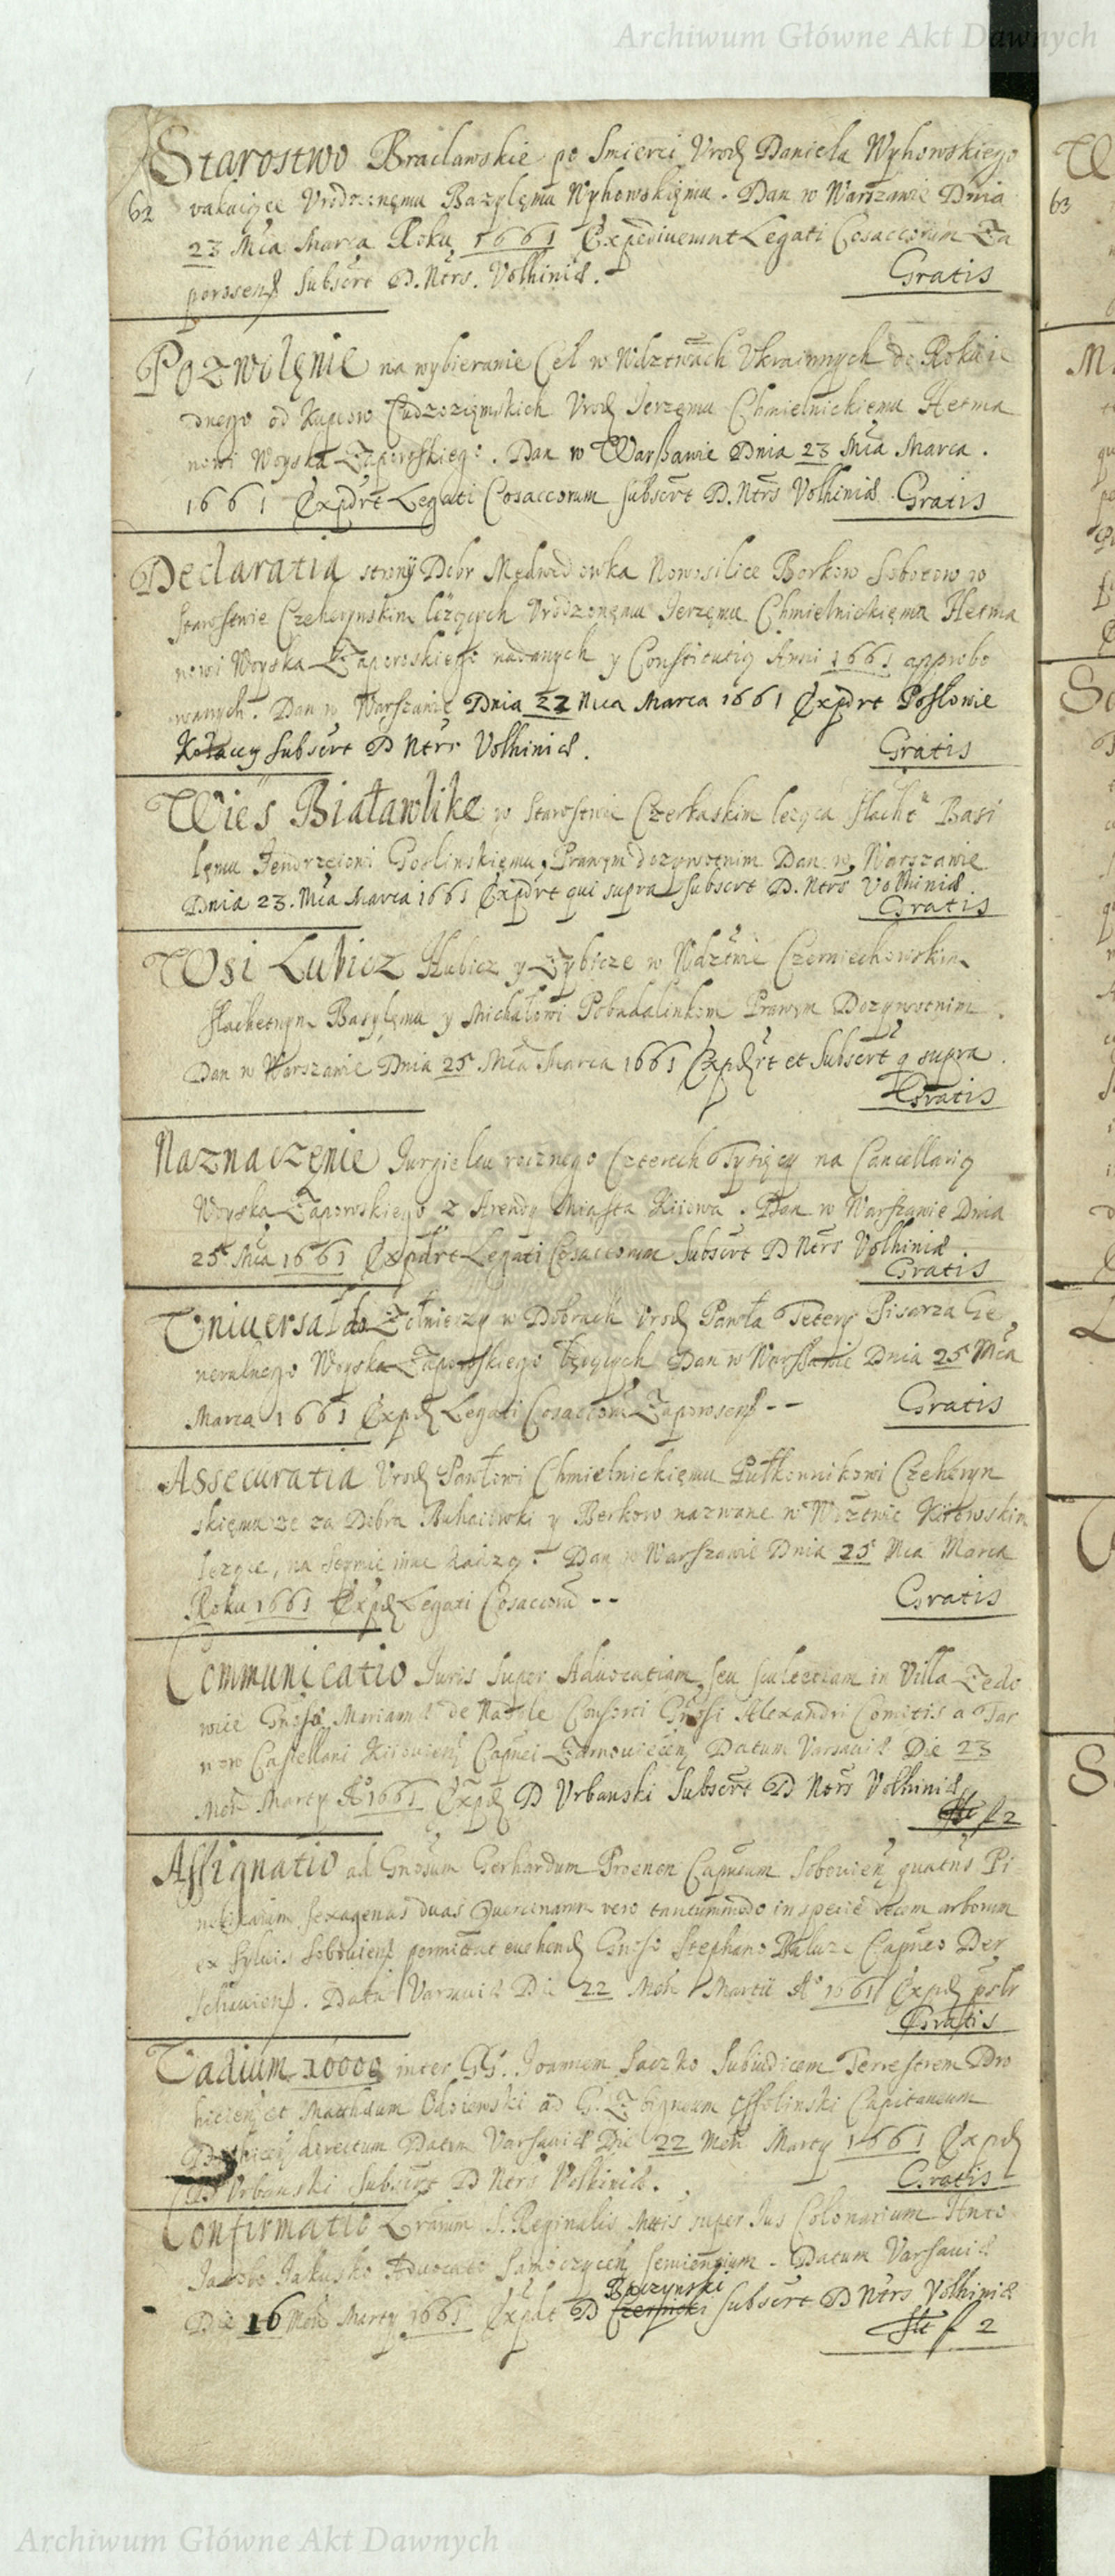 Archiwum Główne Akt Dawnych
Starostwo Bracławskie po Smierci Vrodz Daniela Wyhowskiego
62 vakuiące Vrodzonęmu Bazylęmu Wyhowskięmu. Dan w Warszawie Dnia
23 Mca Marca Roku 1661 Expediuerunt Legati Cosaccorum Za
porosens Subscrt D. Ntrs. Volhiniæ. Gratis
Pozwolęnie na wybieranie Ceł w Wdztwach Vkrainnych do Roku ie
dnego od Kupcow Cudzozięmskich Vrodz Jerzęmu Chmielnickiemu Hetma
nowi Woyska Zaporoskiego. Dan w Warszawie Dnia 23 Mca Marca.
1661 Expdrt Legati Cosaccorum Subscrt D. Ntrs Volhiniæ. Gratis
Declaratia strony Dobr Mędwedowka Nowosilice Borkow Sobotow w
Starostwie Czehrynskim lężących Vrodzonęmu Jerzęmu Chmielnickięmu Hetma
nowi Woyska Zaporoskiego nadanych y Constitutią Anni 1661 approbo
wanych. Dan w Warszawie Dnia 22 Mca Marca 1661 Expdrt Posłowie
Kozaccy Subscrt D Ntrs Volhiniæ. Gratis
Wies Białawlike w Starostwie Czerkaskim leząca Slachtu Basi
lęmu Jendrzeiowi Prawym dozywotnim Dan w Warszawie
Dnia 23. Mca Marca 1661 Expdrt qui supra Subscrt D. Ntrs Volhiniæ.
Gratis
Wsi Lubicz Hubicz y Zybicze w Wdztwie Czerniechowskim
Slachetnym Basylęmu y Michałowi Prawym Dozywotnim.
Dan w Warszawie Dnia 25 Mca Marca 1661 Expdrt et Subscrt q supra.
Gratis
Naznaczęnie Jurgieltu rocznego Czterech Tysięcy na Cancellarią
Woyska Zaporoskiego z Arendy Miasta Kiiowa. Dan w Warszawie Dnia
25 Mca 1661 Expdrt Legati Cosaccorum Subscrt D Ntrs Volhiniæ.
Gratis
Vniuersał do Zołnierzy w Dobrach Vrodz Pawła Tetery Pisarza Ge
neralnego Woyska Zaporoskiego Dan w Warszawie Dnia 25 Mca
Marca 1661 Expd Legati Cosaccorū Zaporosens -- Gratis
Assecuratia Vrodz Pawłowi Chmielnickięmu Pułkownikowi Czehryn
skięmu ze za Dobra Buhaiowki y Berkow nazwane w Wdztwie Kiiowskim
lezące, na Seymie inne nadzą. Dan w Warszawie Dnia 25 Mca Marca
Roku 1661 Expd Legati Cosaccorū -- Gratis
Communicatio Iuris Super Aduocatiam seu scultetiam in Villa Zedo
wice Gnosæ Mariannæ de Consorti Gnosi Alexandri Comitis a Tar
now Castellani Kiiouiens Capnei Datum Varsauiæ Die 23
Mens Marty Ao 1661 Expd D Vrbanski Subscrt D Ntrs Volhiniæ
f 2
Assignatio ad Gnosum Gerhardum Proenen Capneum Sobouiens quatns Pi
sexagenas duas Quercinarum vero tantummodo in specie decem arborum
ex Syluis Sobouiens permittat euehend Gnoso Stephano Capneo Der
schauiens. Datū Varsauiæ Die 22 Mens Martii Ao 1661 Expd
Gratis
Vadium 10000 inter GG. Ioannem Saczko Subiudicem Terrestrem Dro
hiciens et Matthæum ad G. Zbigneum Ossolinski Capitaneum
directum Datum Varsauiæ Die 22 Mens Marty 1661 Expd
D Vrbanski Subscrt D Ntrs Volhiniæ. Gratis
Confirmatio Lrarum S. Reginalis Mttis super Ius Colonarium Hnto
Jacobo Jakusko Aduocato . Datum Varsauiæ
Die 16 Mens Marty 1661 Expdt D Baczynski Subscrt D Ntrs Volhiniæ
f 2
63
Archiwum Główne Akt Dawnych